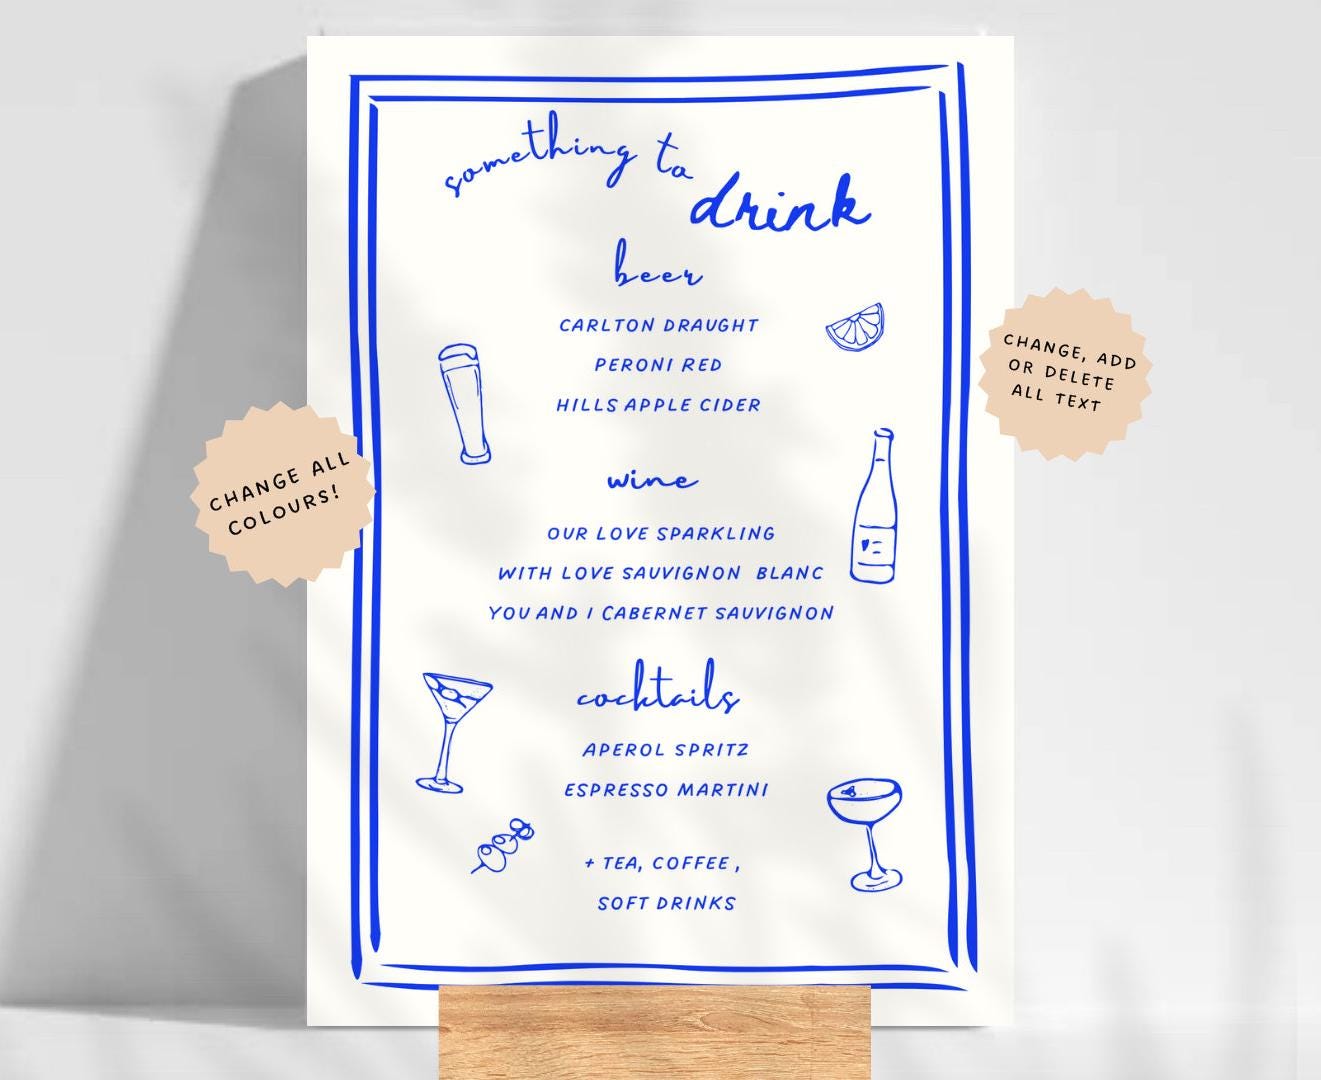 something to
drink
beer
CARLTON DRAUGHT
PERONI RED
HILLS APPLE CIDER
wine
OUR LOVE SPARKLING
WITH LOVE SAUVIGNON BLANC
YOU AND I CABERNET SAUVIGNON
cocktails
APEROL SPRITZ
ESPRESSO MARTINI
+ TEA, COFFEE ,
SOFT DRINKS
CHANGE ALL
COLOURS!
CHANGE, ADD
OR DELETE
ALL TEXT